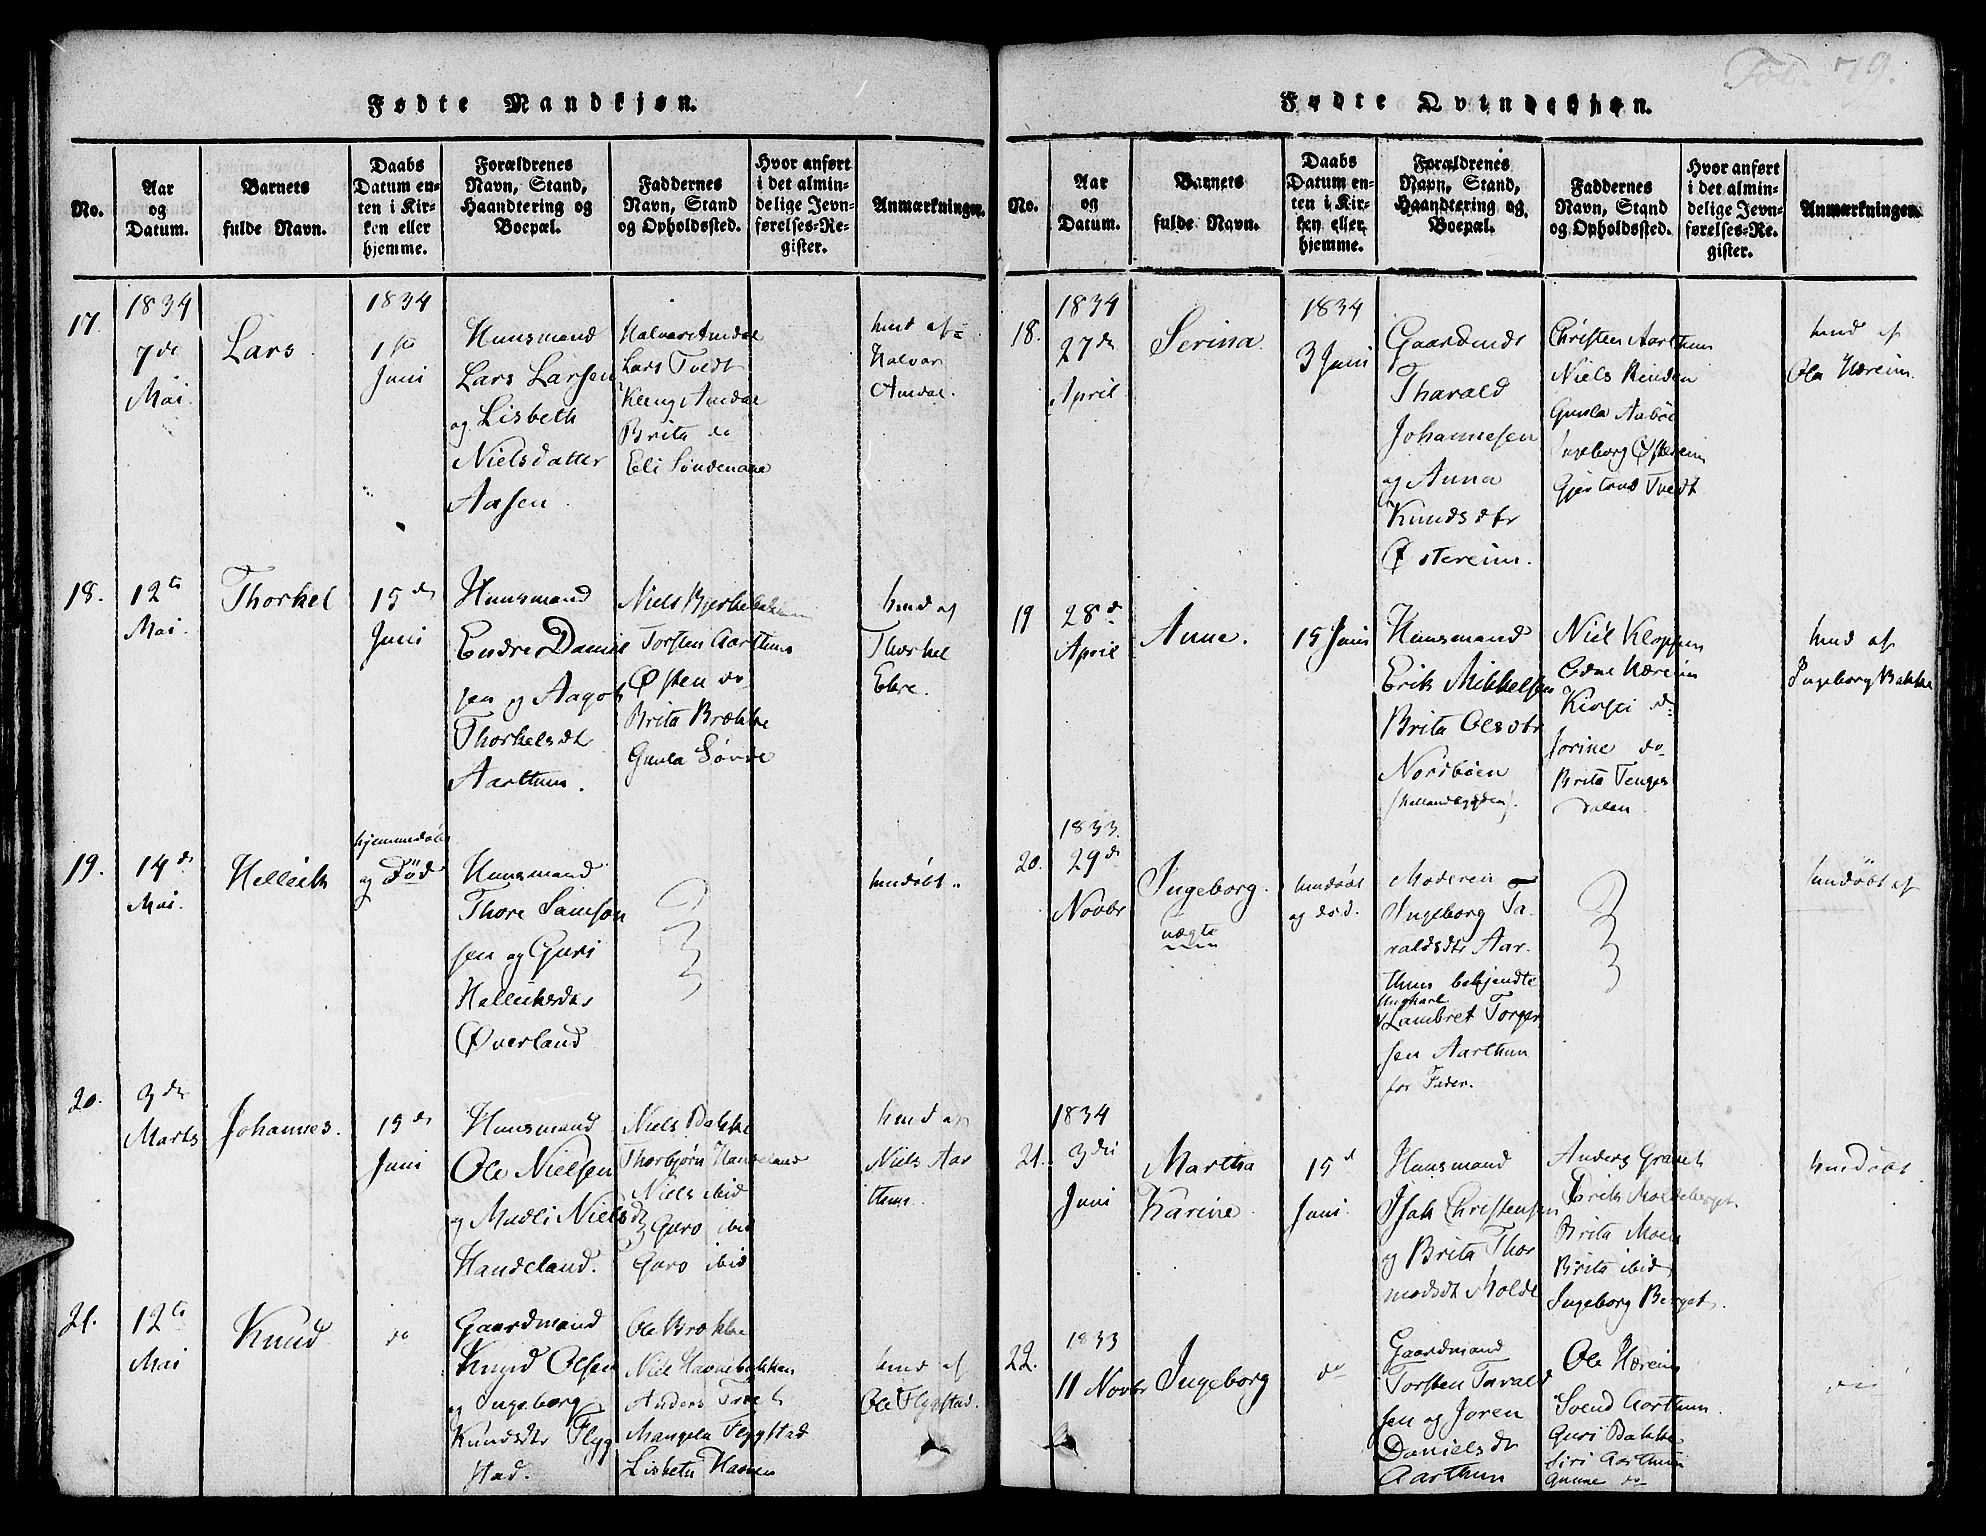 Fol. 79.
Fødte Mandkjøn.
No.
Aar
og
Datum.
Barnets
fulde Navn.
Daabs
Datum en-
ten i Kir-
ken eller
hjemme.
Forældrenes
Navn, Stand,
Haandtering og
Boepæl.
Faddernes
Navn, Stand
og Opholdssted.
Hvor anført
i det almin-
delige Jevn-
førelses-Re-
gister.
Anmærkninger.
17.
1834
7de
Mai.
Lars.
1834
1ste
Juni
Huusmand
Lars Larsen
og Lisbeth
Nielsdatter
Aasen.
Halvar Amdal
Lars Tvedt
Kleng Amdal
Brita do
Eli Søndenaae
hmd af
Halvar
Amdal.
18.
12te
Mai.
Thorkel
15de
Juni
Huusmand
Endre Daniel
sen og Aagot
Thorkelsdt
Aarthun.
Niels Bjerkebakken
Torsten Aarthun
Østen do
Brita Brække
Gunla Løvve
hmd af
Thorkel
Ekre.
19.
14de
Mai.
Helleik
hjemmedøbt
og Død
Huusmand
Thore Samson
sen og Guri
Helleiksdtr
Øverland
hmdøbt.
20.
3de
Marts
Johannes.
15de
Juni
Huusmand
Ole Nielsen
og Madli Nielsdt
Handeland.
Niels Bakke
Thorbjørn Handeland
Niels ibid
Guro ibid
Guro ibid
hmd af
Niels Aar
thun.
21.
12te
Mai
Knud
do
Gaardmand
Knud Olsen
og Ingeborg
Knudsdtr Flyg
stad.
Ole Brække
Niel Havnebakken
Anders Tvedt
Mangela Flygstad
Lisbeth Havnen
hmd af
Ole Flygstad.
Fødte Qvindekjøn.
No.
Aar
og
Datum.
Barnets
fulde Navn.
Daabs
Datum en-
ten i Kir-
ken eller
hjemme.
Forældrenes
Navn, Stand,
Haandtering og
Boepæl.
Faddernes
Navn, Stand
og Opholdssted.
Hvor anført
i det almin-
delige Jevn-
førelses-Re-
gister.
Anmærkningen.
18.
1834
27de
April
Serina.
1834
3 Juni
Gaardmd
Tharald
Johannesen
og Anna
Knudsdtr
Østereim.
Christen Aarthun
Niels Rinden
Gunla Aabøe
Ingeborg Østereim
Gjertrud Tvedt
hmd af
Ola Hæreim.
19
28de
April
Anne.
15 Juni
Huusmand
Erik Mikkelsen
Brita Olsdtr
Nordbøen
(Hellandsbygden).
Niel Kloppen
Edne Hæreim
Kirsti do
Jorine do
Brita Tenges
dalen.
hmd af
Ingeborg Bakke
20.
1833.
29de
Novbr
Ingeborg.
uægte
hmdøbt
og død.
Moderen
Ingeborg Ta-
raldsdtr Aar-
thun bekjendte
Ungkarl
Lambret Torger
sen Aarthun
for Fader.
hmdøbt af
21.
1834
3die
Juni
Martha
Karine.
15d
Juni.
Huusmand
Isak Christensen
og Brita Thor
modsdt Molde
Anders Gravet
Erik Moldeberget
Brita Moen
Brita ibid
Ingeborg Berget.
hmdøbt
22.
1833
11 Novbr
Ingeborg
do
Gaardmand
Torsten Tarald
sen og Joren
Danielsdt
Aarthun
Ole Hæreim
Svend Aarthun.
Guri Bakke
Siri Aarthun
Gunne do
do